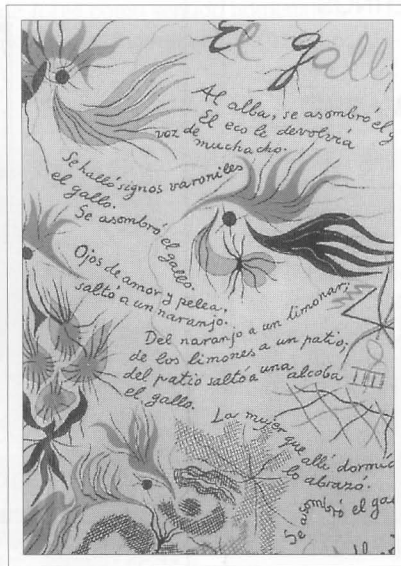 El gall
Al alba, se asombró el g
El eco le devolvía
voz de muchacho.
Se halló signos varoniles
el gallo.
Se asombró el gallo.
Ojos de amor y pelea,
saltó a un naranjo.
Del naranjo a un limonar;
de los limones a un patio;
del patio saltó a una alcoba
el gallo.
La mujer que allí dormía
lo abrazó.
Se asombró el gal